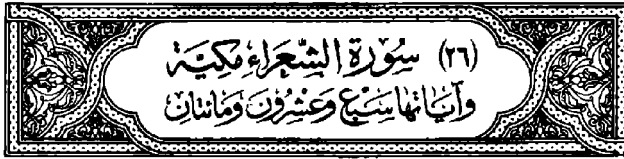 (٢٦) سُورَةُ الشُّعَرَاءِ مَكِيَّة
وَآيَاتُهَا سَبْعٌ وَعِشْرُونَ وَمَائتَان